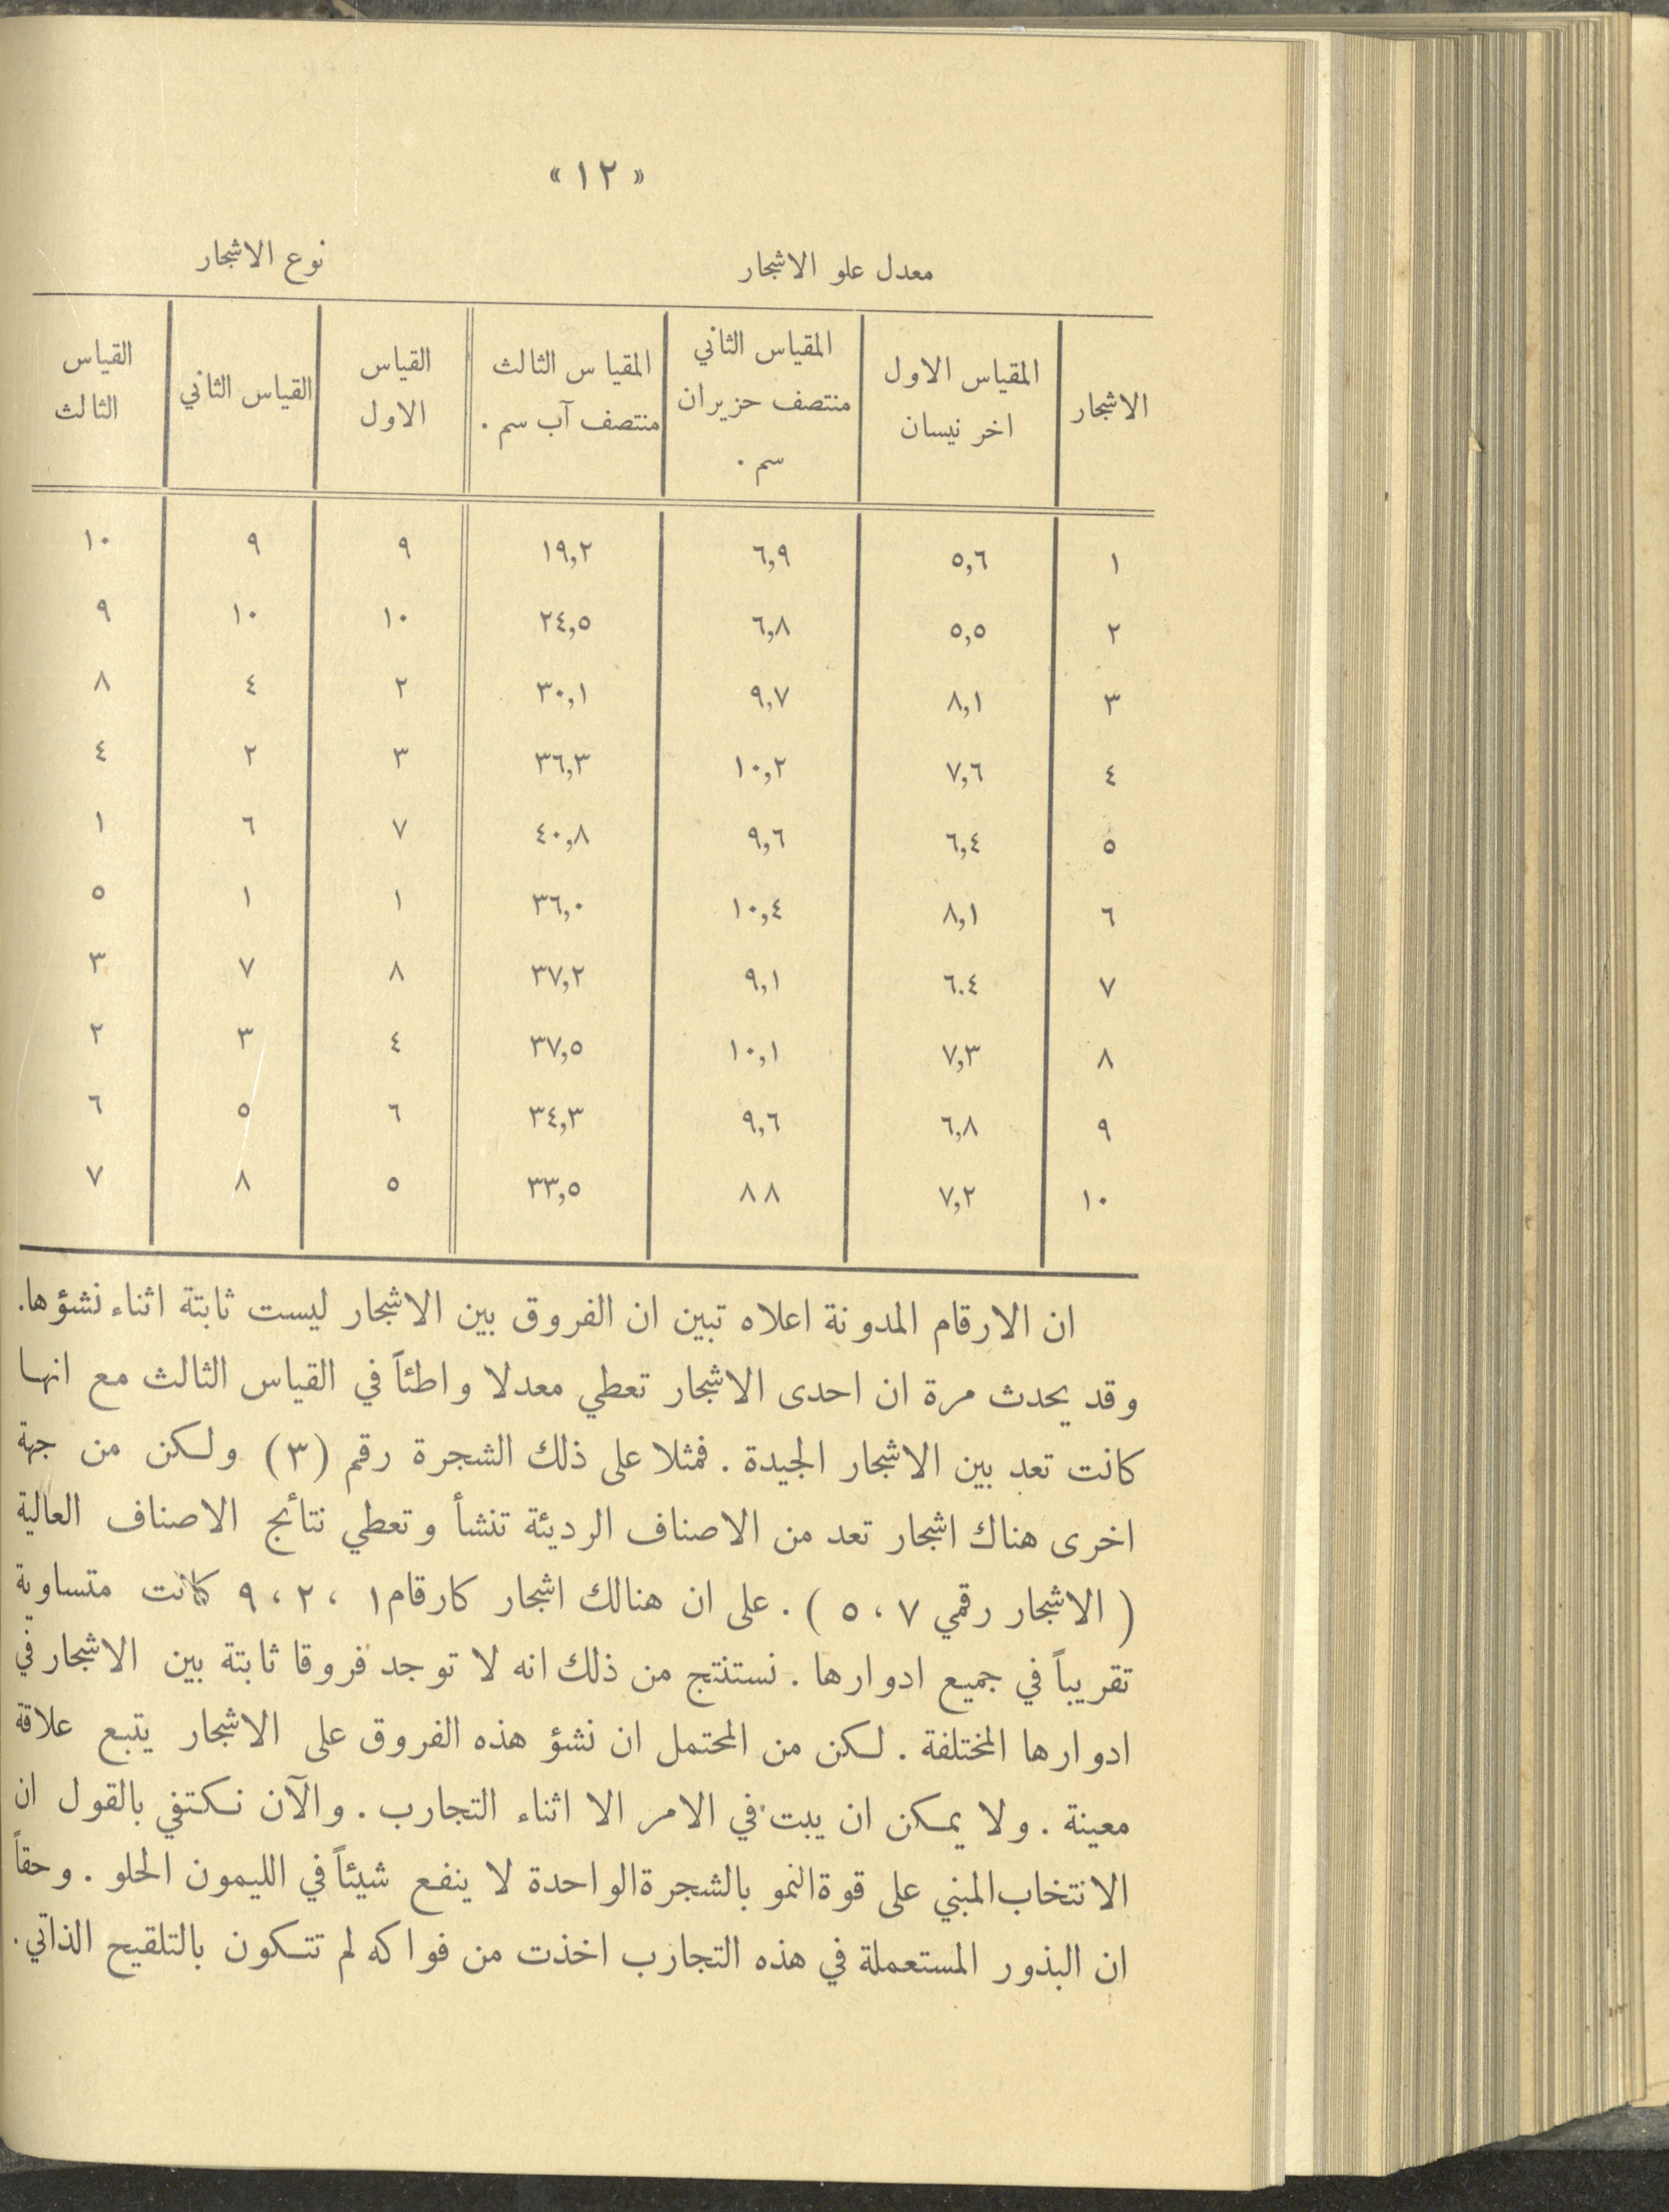 « ١٢ »
معدل علو الاشجار نوع الاشجار
الاشجار | المقياس الاول اخر نيسان | المقياس الثاني منتصف حزيران سم . | المقياس الثالث منتصف آب سم . | القياس الاول | القياس الثاني | القياس الثالث
١ | ٥,٦ | ٦,٩ | ١٩,٢ | ٩ | ٩ | ١٠
٢ | ٥,٥ | ٦,٨ | ٢٤,٥ | ١٠ | ١٠ | ٩
٣ | ٨,١ | ٩,٧ | ٣٠,١ | ٢ | ٤ | ٨
٤ | ٧,٦ | ١٠,٢ | ٣٦,٣ | ٣ | ٢ | ٤
٥ | ٦,٤ | ٩,٦ | ٤٠,٨ | ٧ | ٦ | ١
٦ | ٨,١ | ١٠,٤ | ٣٦,٠ | ١ | ١ | ٥
٧ | ٦.٤ | ٩,١ | ٣٧,٢ | ٨ | ٧ | ٣
٨ | ٧,٣ | ١٠,١ | ٣٧,٥ | ٤ | ٣ | ٢
٩ | ٦,٨ | ٩,٦ | ٣٤,٣ | ٦ | ٥ | ٦
١٠ | ٧,٢ | ٨ ٨ | ٣٣,٥ | ٥ | ٨ | ٧
ان الارقام المدونة اعلاه تبين ان الفروق بين الاشجار ليست ثابتة اثناء نشؤها.
وقد يحدث مرة ان احدى الاشجار تعطي معدلا واطئاً في القياس الثالث مع انها
كانت تعد بين الاشجار الجيدة . فمثلا على ذلك الشجرة رقم (٣) ولكن من جهة
اخرى هناك اشجار تعد من الاصناف الرديئة تنشأ وتعطي نتائج الاصناف العالية
( الاشجار رقمي ٧ ، ٥ ) . على ان هنالك اشجار كارقام ١ ، ٢ ، ٩ كانت متساوية
تقريباً في جميع ادوارها . نستنتج من ذلك انه لا توجد فروقا ثابتة بين الاشجار في
ادوارها المختلفة . لكن من المحتمل ان نشؤ هذه الفروق على الاشجار يتبع علاقة
معينة . ولا يمكن ان يبت في الامر الا اثناء التجارب . والآن نكتفي بالقول ان
الانتخاب المبني على قوة النمو بالشجرة الواحدة لا ينفع شيئاً في الليمون الحلو . وحقاً
ان البذور المستعملة في هذه التجارب اخذت من فواكه لم تتكون بالتلقيح الذاتي .